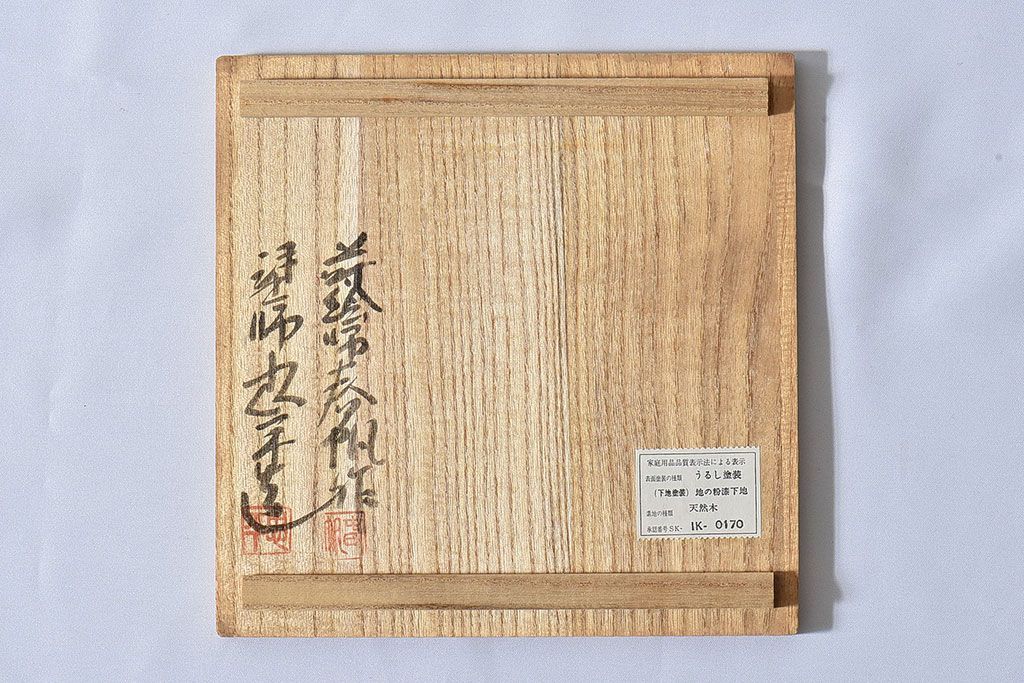 蒔絵師春帆作
塗師忠平造
家庭用品品質表示法による表示
表面塗装の種類 うるし塗装
(下地塗装) 地の粉漆下地
素地の種類 天然木
承認番号SK- 1K- 0170